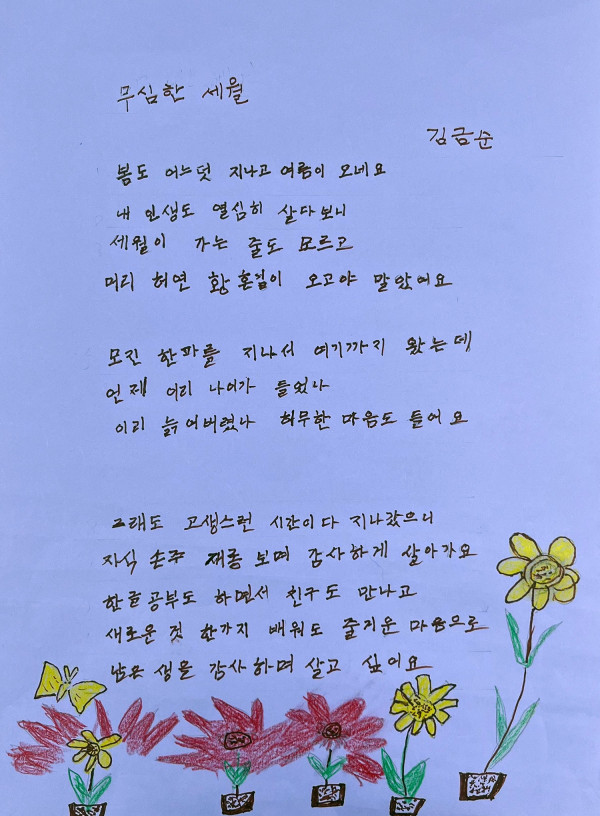 무심한 세월
김금순
봄도 어느덧 지나고 여름이 오네요
내 인생도 열심히 살다보니
세월이 가는 줄도 모르고
머리 허연 황혼길이 오고야 말았어요
모진 한파를 지나서 여기까지 왔는데
언제 이리 나이가 들었나
이리 늙어버렸나 허무한 마음도 들어요
그래도 고생스런 시간이 다 지나갔으니
자식 손주 재롱 보며 감사하게 살아가요
한글공부도 하면서 친구도 만나고
새로운 것 한가지 배워도 즐거운 마음으로
남은 생을 감사하며 살고 싶어요